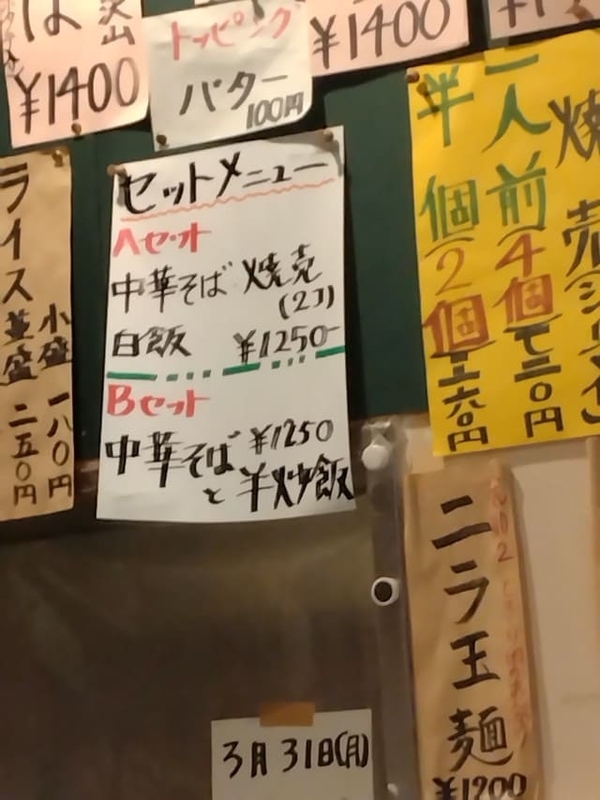 は
沢山
¥1400
トッピング
バター
100円
¥1400
セットメニュー
Aセット
中華そば 焼売
(2コ)
白飯 ¥1250-
Bセット
中華そば ¥1250
と 半炒飯
ライス 並盛 二五〇円
小盛 一八〇円
焼売
一人前(4個)
半個(2個)
ニラ玉麺
¥1200
3月31日(月)